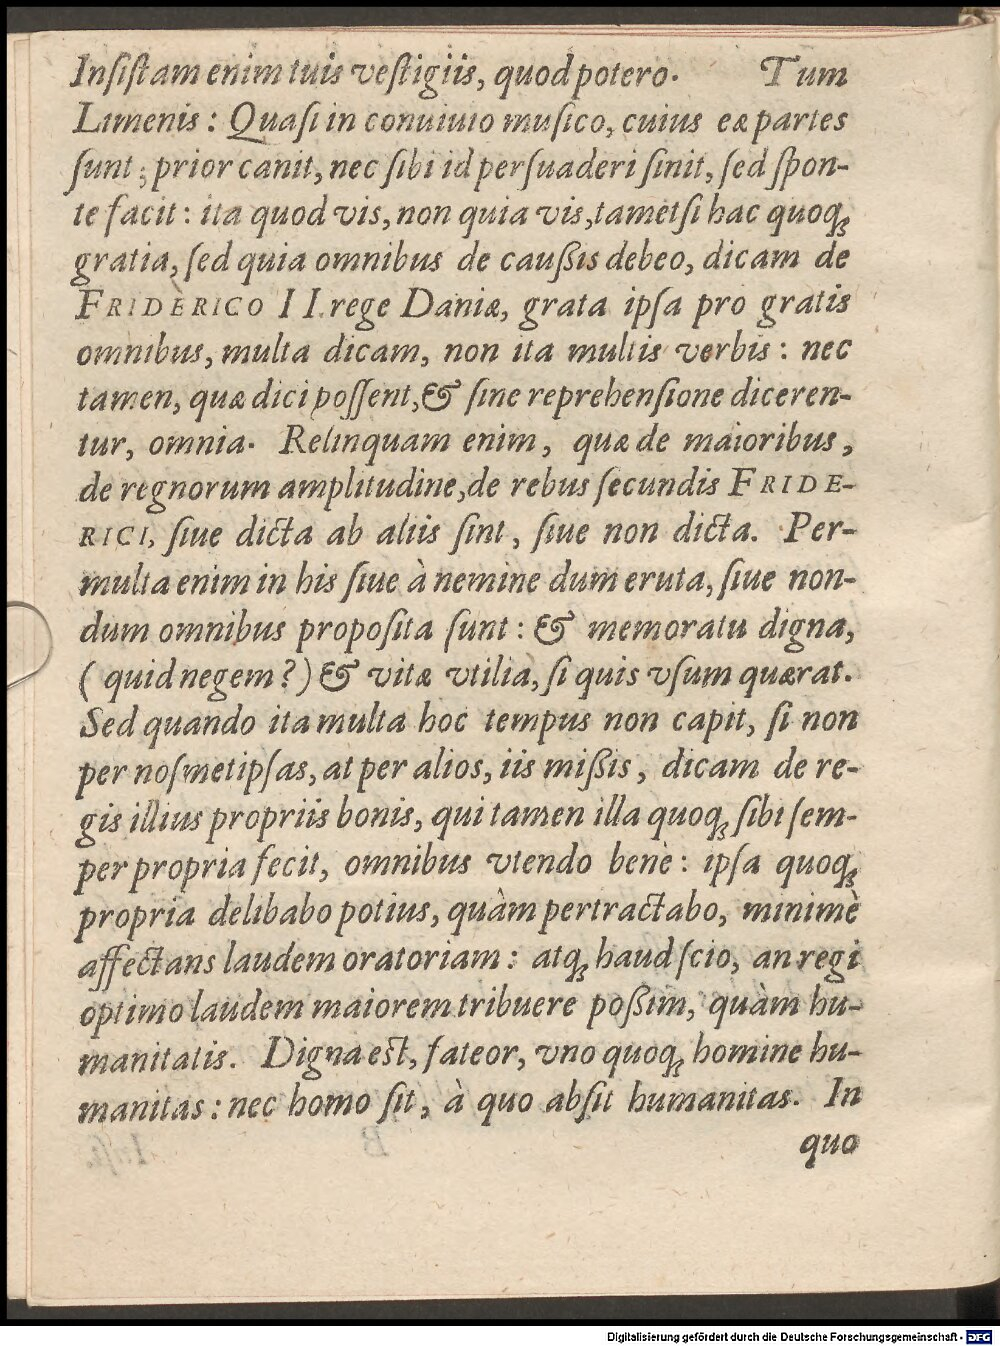 Inſiſtam enim tuis veſtigiis, quod potero. Tum
Limenis: Quaſi in conuiuio muſico, cuius eæ partes
ſunt; prior canit, nec ſibi id perſuaderi ſinit, ſed ſpon-
te facit: ita quod vis, non quia vis, tametſi hac quoq;
gratia, ſed quia omnibus de cauſsis debeo, dicam de
FRIDERICO II. rege Daniæ, grata ipſa pro gratis
omnibus, multa dicam, non ita multis verbis: nec
tamen, quæ dici poſſent, & ſine reprehenſione diceren-
tur, omnia. Relinquam enim, quæ de maioribus,
de regnorum amplitudine, de rebus ſecundis FRIDE-
RICI, ſiue dicta ab aliis ſint, ſiue non dicta. Per-
multa enim in his ſiue à nemine dum eruta, ſiue non-
dum omnibus propoſita ſunt: & memoratu digna,
(quid negem?) & vitæ vtilia, ſi quis vſum quærat.
Sed quando ita multa hoc tempus non capit, ſi non
per noſmetipſas, at per alios, iis miſsis, dicam de re-
gis illius propriis bonis, qui tamen illa quoq; ſibi ſem-
per propria fecit, omnibus vtendo benè: ipſa quoq;
propria delibabo potius, quàm pertractabo, minimè
affectans laudem oratoriam: atq; haud ſcio, an regi
optimo laudem maiorem tribuere poſsim, quàm hu-
manitatis. Digna est, fateor, vno quoq; homine hu-
manitas: nec homo ſit, à quo abſit humanitas. In
quo
Digitalisierung gefördert durch die Deutsche Forschungsgemeinschaft - DFG